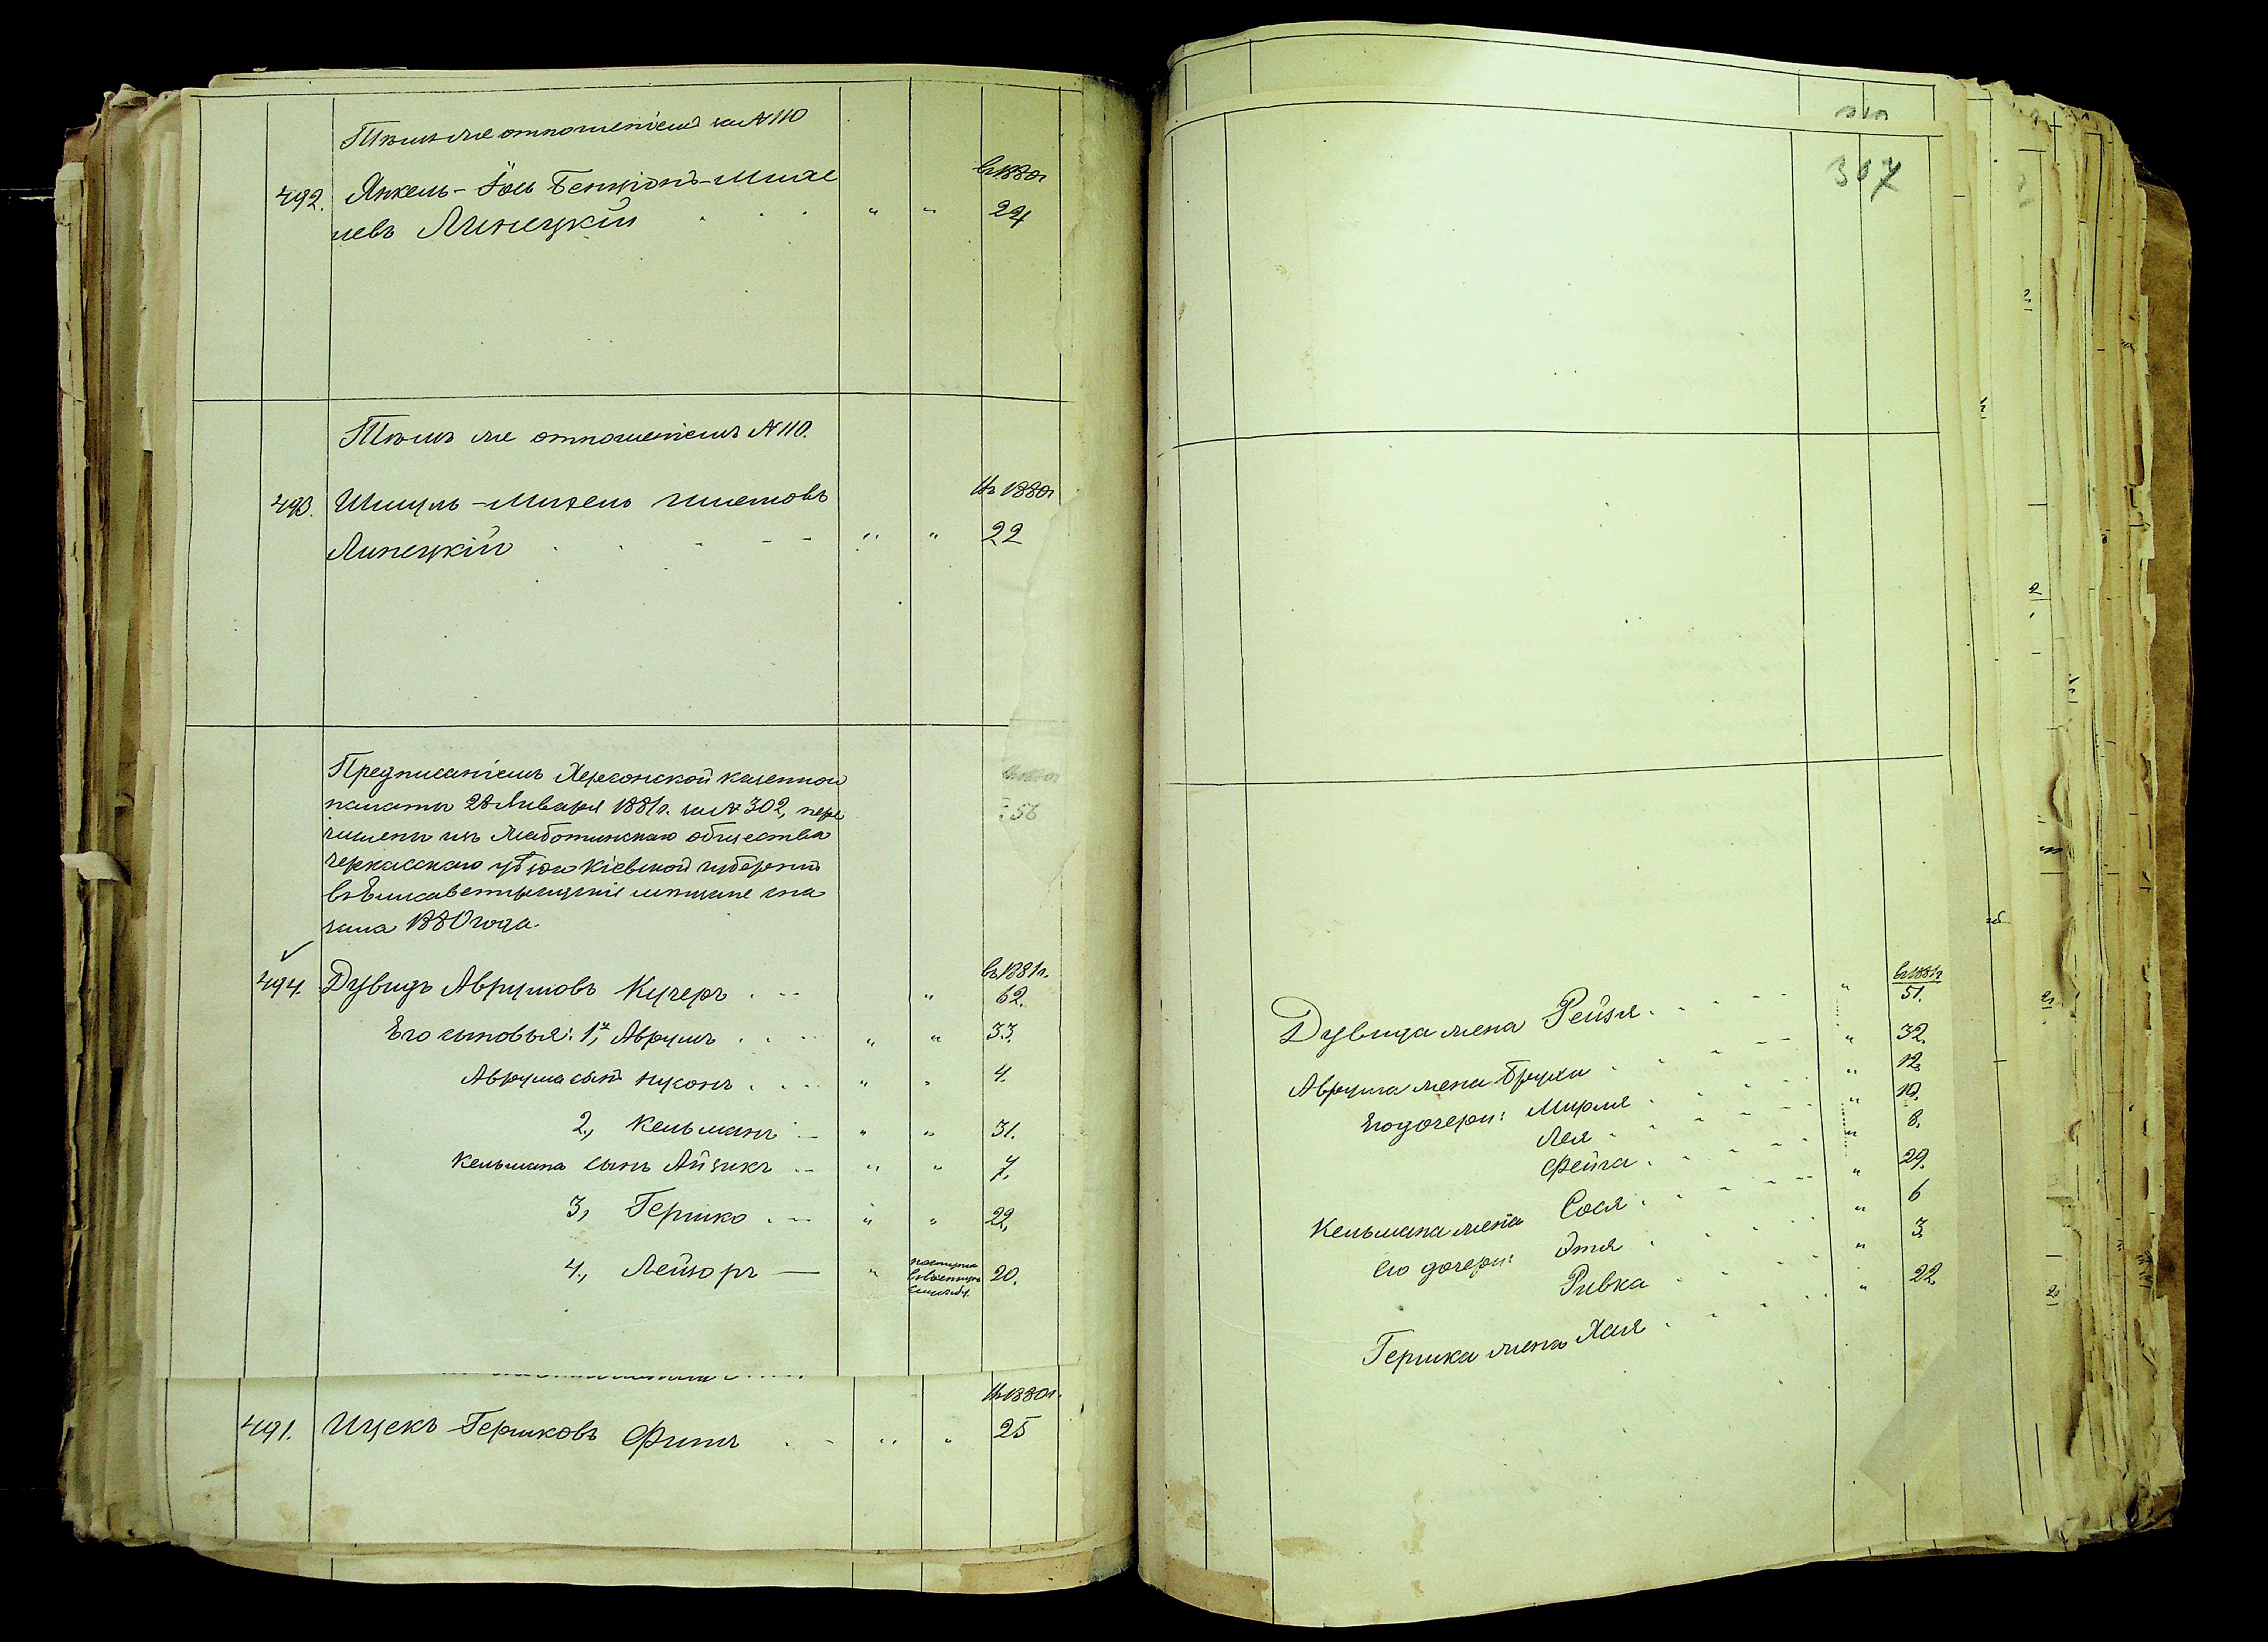 Тѣмъ-же отношеніемъ за №110
въ 1880г
492. Янкель-Іось Бенціонъ-Михе
левъ Линецкій . . . " " 24
Тѣмъ же отношеніемъ №110.
Въ 1880г
493. Шмуль-Михель Ицковъ
Линецкій . . - - - " " 22
Предписаніемъ Херсонской казенной
палаты 28 Января 1881г. за №302, пере
числены изъ Жаботинскаго общества
Черкасскаго уѣзда Кіевской губерніи
въ Елисаветградскіе мѣщане съ на
чала 1880 года.
въ 1881г.
494. Дувидъ Аврумовъ Кучеръ . -- " 62.
Его сыновья: 1й, Аврумъ . . . " " 33.
Аврума сынъ Нусонъ . . . " " 4.
2., Кельманъ -- " " 31.
Кельмана сынъ Айзикъ -- " " 7.
3, Гершко . -- " " 22,
4., Лейзоръ — " поступилъ
въ военную
службу. 20.
Въ 1880г.
491. Ицекъ Гершковъ Финъ . - " " 25
307
въ 1881г
Дувида жена Рейзя . . . - - " 51.
Аврума жена Бруха . . - -- " 32.
Его дочери: Мирля . . . . " 12,
Лея . . - - - " 10.
Фейга . . - . . " 8.
Кельмана жена Сося . . - - -- " 29.
его дочери: Этя . . . . " 6
Ривка . . . . " 3
Гершка жена Хая . - - . . " 22.